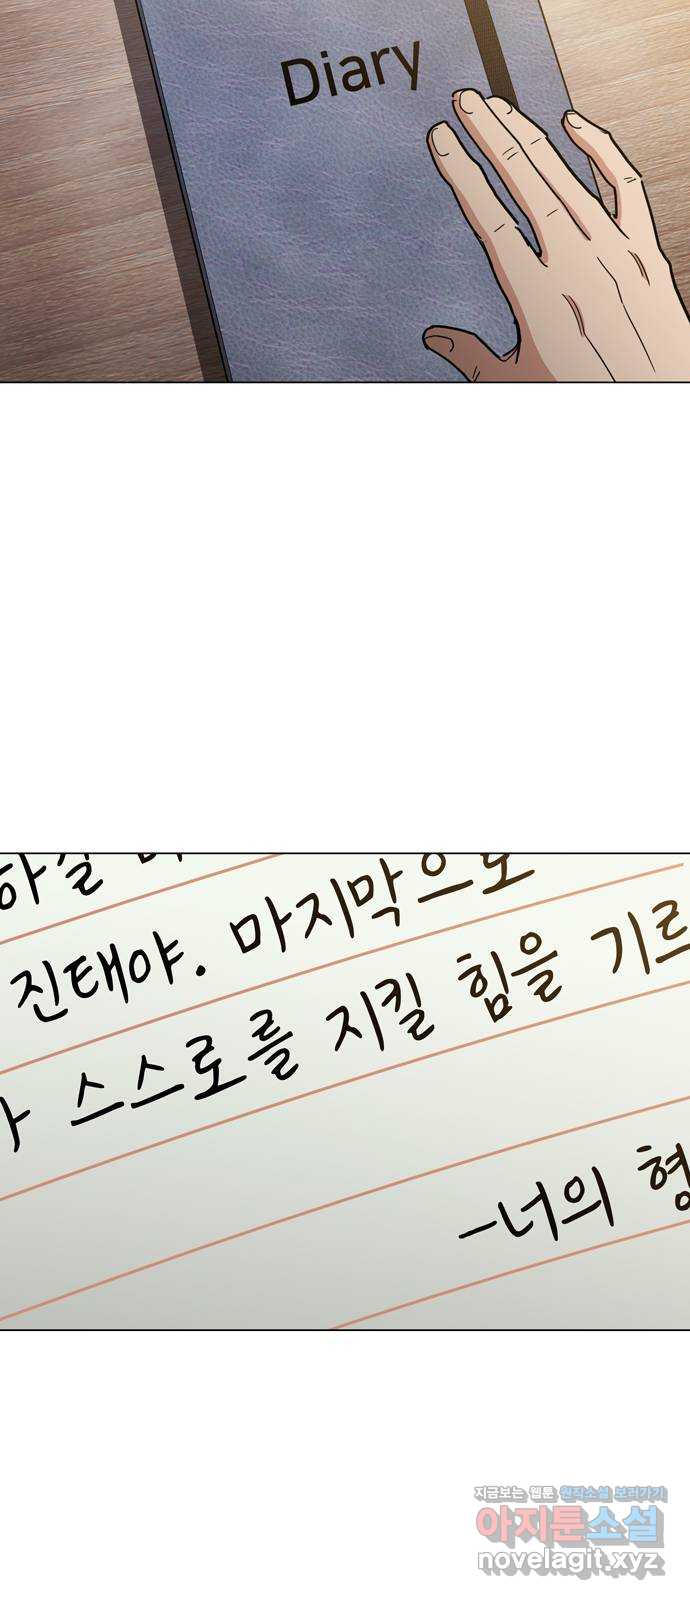 Diary
하실
진태야. 마지막으로
스스로를 지킬 힘을 기르
-너의 형
지금보는 웹툰 원작소설 보러가기
아지툰소설
novelagit.xyz